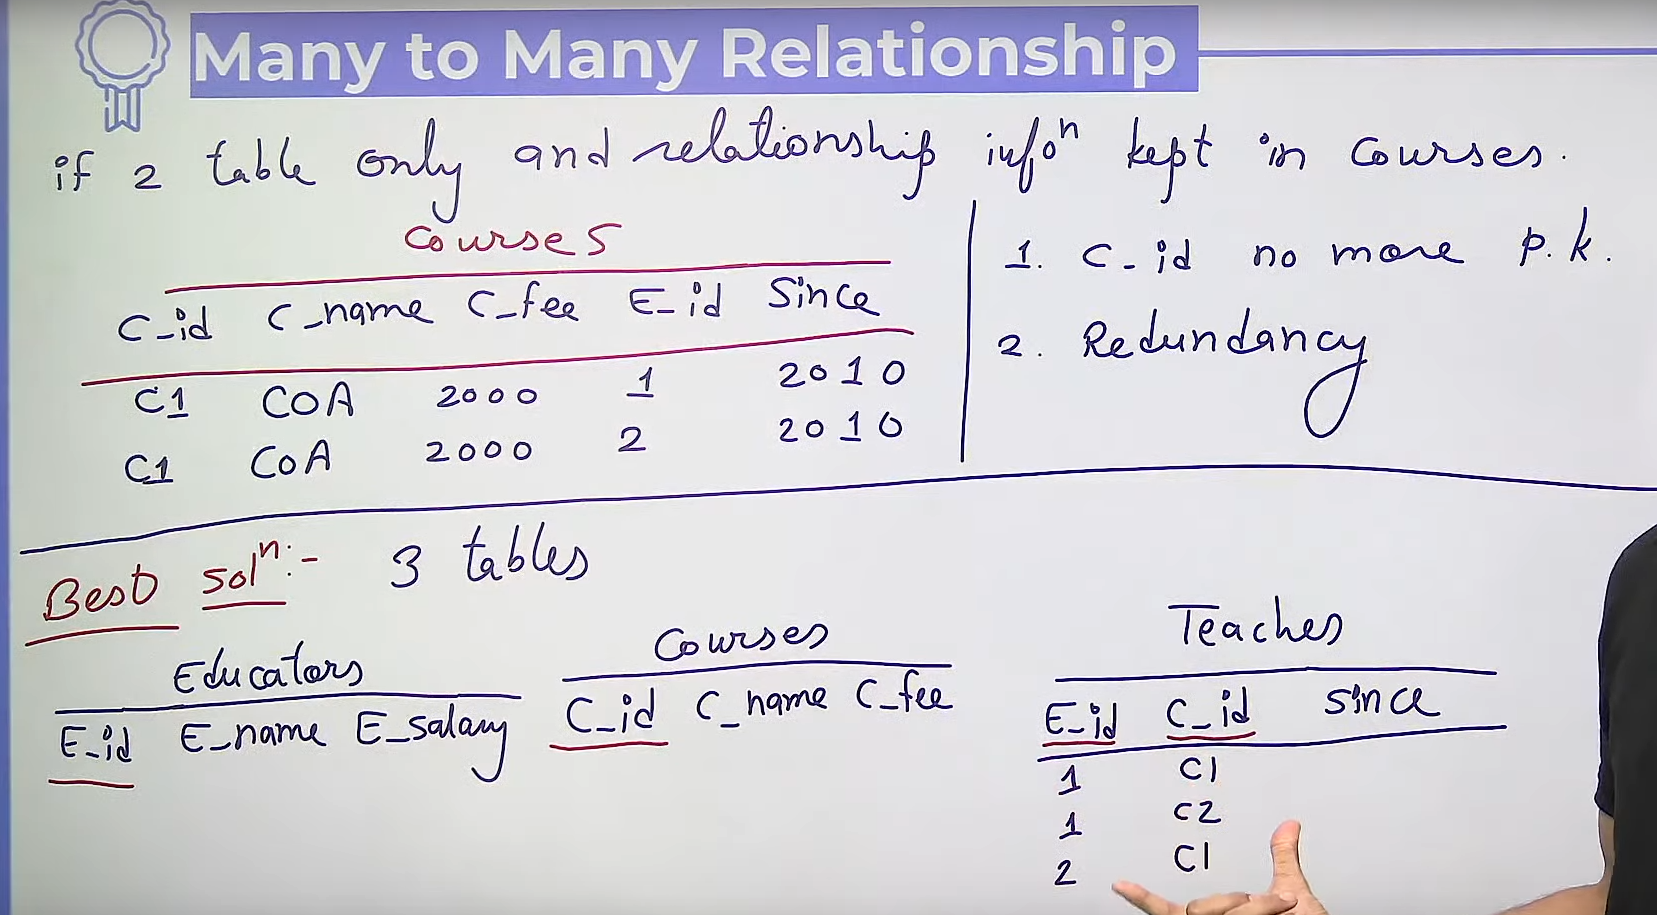 Many to Many Relationship
if 2 table only and relationship infoⁿ kept in courses.
Courses
C_id C_name C_fee E_id Since
C1 COA 2000 1 2010
C1 COA 2000 2 2010
1. C_id no more p.k.
2. Redundancy
Best solⁿ:- 3 tables
Educators
E_id E_name E_salary
Courses
C_id C_name C_fee
Teaches
E_id C_id since
1 C1
1 C2
2 C1